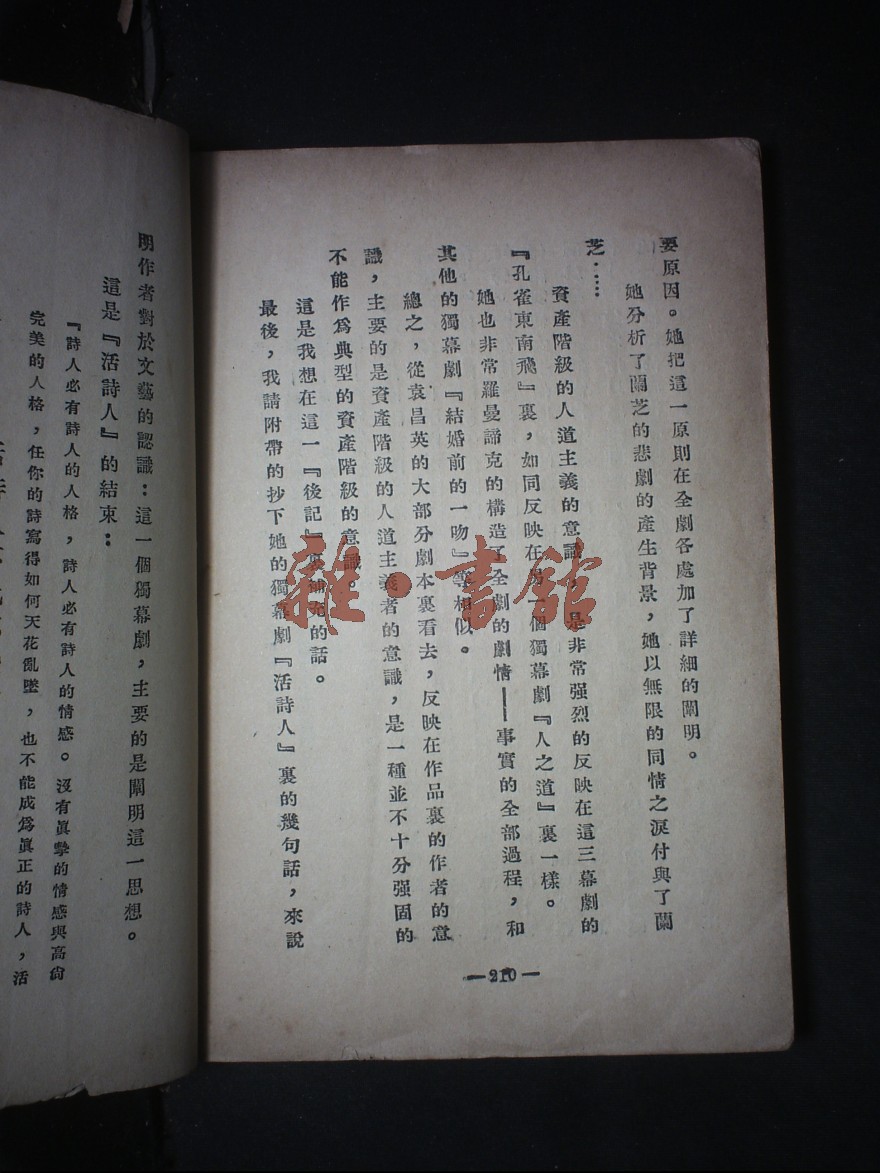 要原因。她把這一原則在全劇各處加了詳細的闡明。
她分析了蘭芝的悲劇的產生背景，她以無限的同情之淚付與了蘭
芝……
資產階級的人道主義的意識　是非常强烈的反映在這三幕劇的
『孔雀東南飛』裏，如同反映在另一個獨幕劇『人之道』裏一樣。
她也非常羅曼諦克的構造了全劇的劇情——事實的全部過程，和
其他的獨幕劇『結婚前的一吻』等相似。
總之，從袁昌英的大部分劇本裏看去，反映在作品裏的作者的意
識，主要的是資產階級的人道主義者的意識，是一種並不十分强固的
不能作爲典型的資產階級的意識。
這是我想在這一『後記』裏補充的話。
最後，我請附帶的抄下她的獨幕劇『活詩人』裏的幾句話，來說
—210—
明作者對於文藝的認識：這一個獨幕劇，主要的是闡明這一思想。
這是『活詩人』的結束：
『詩人必有詩人的人格，詩人必有詩人的情感。沒有眞摯的情感與高尙
完美的人格，任你的詩寫得如何天花亂墜，也不能成爲眞正的詩人，活
雜·書館